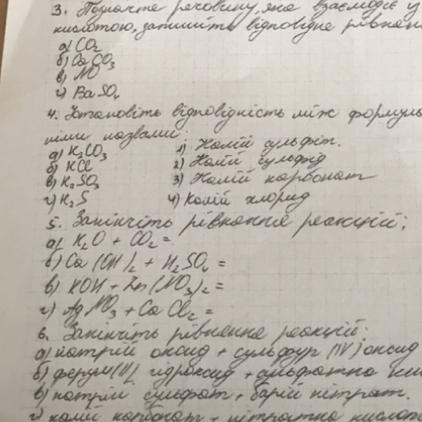 3. Позначте речовину, яка взаємодіє з
кислотою, запишіть відповідне рівнян
а) CO₂
б) CaCO₃
в) NO
г) BaSO₄
4. Установіть відповідність між формул
їхніми назвами:
а) K₂CO₃ 1) Калій сульфіт.
б) KCl 2) Калій сульфід
в) K₂SO₃ 3) Калій карбонат
г) K₂S 4) Калій хлорид
5. Закінчіть рівняння реакцій:
а) K₂O + CO₂ =
б) Ca(OH)₂ + H₂SO₄ =
в) KOH + Zn(NO₃)₂ =
г) AgNO₃ + CaCl₂ =
6. Закінчіть рівняння реакцій:
а) натрій оксид + сульфур (IV) оксид
б) ферум гідроксид + сульфатна кис
в) натрій сульфат + барій нітрат.
г) калій карбонат + нітратна кислот